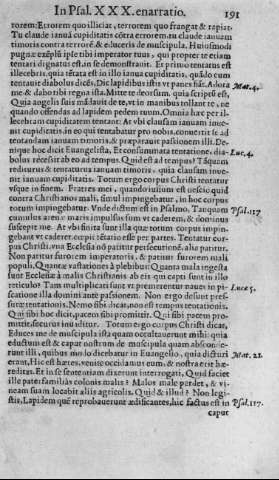 In Psal. XXX. enarratio. 191
torem: Errorem quo illiciat, terrorem quo frangat & rapiat.
Tu claude ianuā cupiditatis cōtra errorem: tu claude ianuam
timoris contra terrorē. & educeris de muscipula. Huiusmodi
pugnæ exēplū ipse tibi imperator tuus, qui propter te etiam
tentari dignatus est, in se demonstrauit. Et primo tentatus est
illecebris, quia tētata est in illo ianua cupiditatis, quādo eum
tentauit diabolus dicēs, Dic lapidibus istis vt panes fiāt. Adora Mat. 4.
me & dabo tibi regna ista. Mitte te deorsum, quia scriptū est,
Quia angelis suis mādauit de te, vt in manibus tollant te, ne
quando offendas ad lapidem pedem tuum. Omnis hæc per il-
lecebram cupiditatem tentant: At vbi clausam ianuam inue-
nit cupiditatis, in eo qui tentabatur pro nobis, conuertit se ad
tentandam ianuam timoris, & præparauit passionem illi. De-
nique hoc dicit Euangelista, Et consummata tentatione, dia- Luc. 4.
bolus recēsit ab eo ad tempus. Quid est ad tempus? Tāquam
rediturus & tentaturus ianuam timoris, quia clausam inue-
nit ianuam cupiditatis. Totum ergo corpus Christi tentatur
vsque in finem. Fratres mei, quando iussum est nescio quid
contra Christianos mali, simul impingebatur, in hoc corpus
totum impingebatur. Vnde dictum est in Psalmo, Tanquam Psal. 117
cumulus arenæ maris impulsus sum vt caderem, & dominus
suscepit me. At vbi finita sunt illa quæ totum corpus impin-
gebant vt caderet, cœpit tētatio esse per partes. Tentatur cor-
pus Christi, vna Ecclesia nō patitur persecutionē, alia patitur.
Non patitur furorem imperatoris, & patitur furorem mali
populi. Quantæ vastationes à plebibus: Quanta mala ingesta
sunt Ecclesiæ à malis Christianis ab eis qui capti sunt in illo
reticulo? Tam multiplicati sunt vt premerentur naues in pi- Luc. 5.
scatione illa domini ante passionem. Non ergo desunt pres-
suræ tentationis. Nemo sibi dicat, non est tempus tentationis.
Qui sibi hoc dicit, pacem sibi promittit. Qui sibi pacem pro-
mittit, securus inuaditur. Totum ergo corpus Christi dicat,
Educes me de muscipula ista quam occultauerunt mihi: quia
eductum est & caput nostrum de muscipula quam abscon-
derunt illi, quibus modo dicebatur in Euangelio, quia dicturi
erant, Hic est hæres, venite occidamus eum, & nostra erit hæ- Mat. 21.
reditas. Et in se sententiam dixerunt interrogati, Quid faciet
ille pater familiâs colonis malis? Malos male perdet, & vi-
neam suam locabit aliis agricolis. Quid & illud? Non legi-
stis, Lapidem quē reprobauerunt ædificantes, hic factus est in Psal. 117.
caput